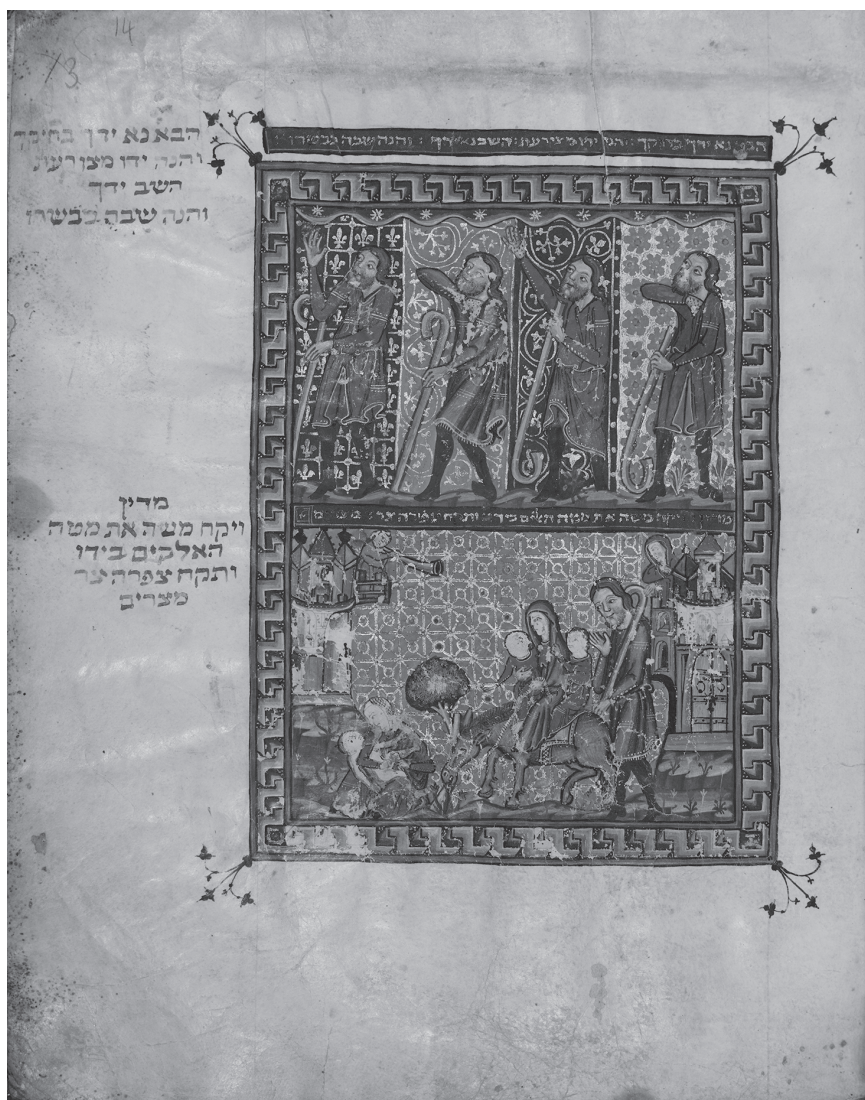 14
13
הבא נא ידך בחיקך
והנה ידו מצורעת
השב ידך
והנה שבה מבשרו
הבא נא ידך בחיקך והנה ידו מצורעת השב נא ידך והנה שבה מבשרו
מדין
ויקח משה את מטה
האלקים בידו
ותקח צפרה צר
מצרים
ויקח משה את מטה האלקים בידו ותקח צפרה צר מצרים